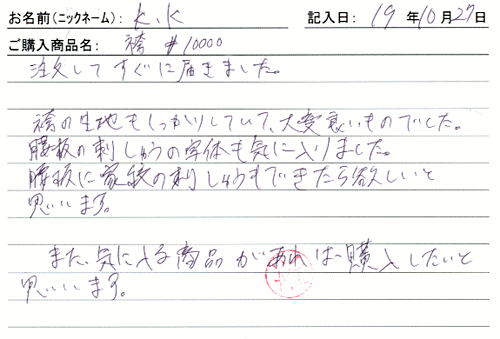 お名前(ニックネーム): K.K 記入日: 19年10月27日
ご購入商品名: 袴 #10000
注文してすぐに届きました。
袴の生地もしっかりしていて、大変良いものでした。
腰板の刺しゅうの字体も気に入りました。
腰板に家紋の刺しゅうもできたら欲しいと
思います。
また、気に入る商品があれば購入したいと
思います。